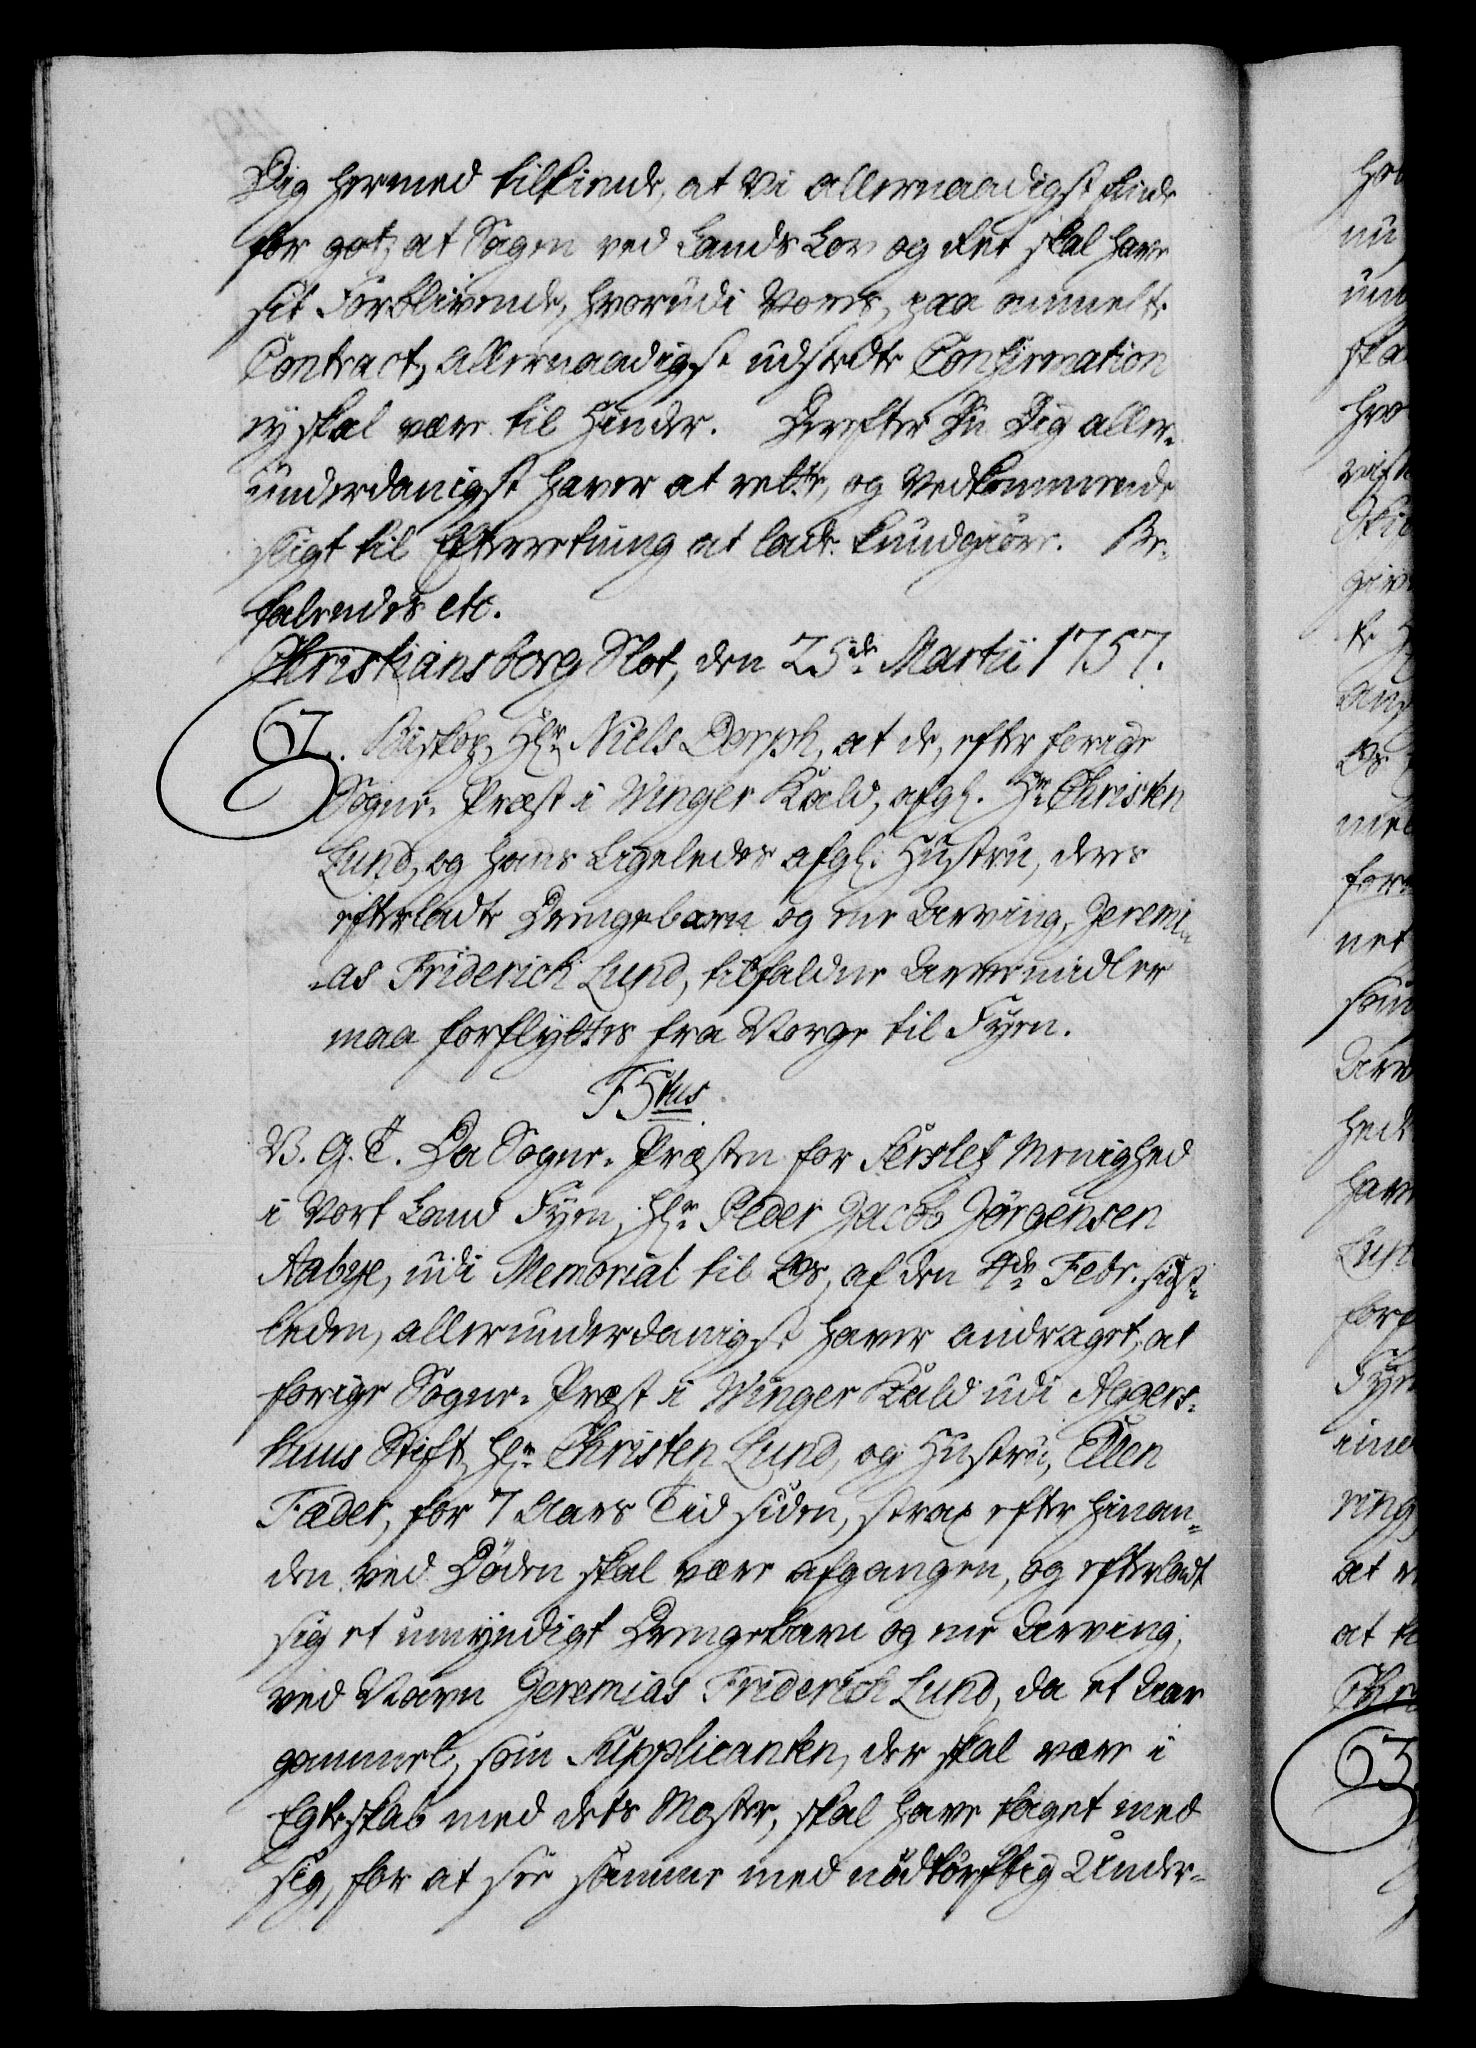 Dig hermed tilkiende, at Vi allernaadigst finde
for got, at Sagen ved Lands Lov og Ret skal have
sit Forblivende, hvorudi Vores, paa ommelte
Contract, allernaadigst udstedte Confirmation
ey skal være til Hinder. Derefter Du Dig aller-
underdanigst haver at rette, og Vedkommende
sligt til Efterretning at lade kundgiøre. Be-
falendes etc.
Christiansborg Slot, den 25de Martii 1757.
Biskop, Hr. Niels Dorph, at de, efter forige
Sogne-Præst i Winger Kald, afg. Hr. Christen
Lund, og hans Ligeledes afg. Hustru, deres
efterladte Drengebarn og ene Arving, Jeremi-
-as Friderich Lund, tilfaldne Arvemidler
maa forflyttes fra Norge til Fyen.
F5tus
V. G. T. Da Sogne-Præsten for Ferslef Menighed
i Vort Land Fyen, Hr. Peder Jacob Jørgensen
Aabye, udi Memorial til Os, af den 4de Febr. sidst-
leden, allerunderdanigst haver andraget, at
forige Sogne-Præst i Winger Kald udi Aggers-
huus Stift, Hr. Christen Lund, og Hustru, Ellen
Fæder, for 7 Aars Tid siden, strax efter hinan-
den ved Døden skal være afgangen, og efterladt
sig et umyndigt Drengebarn og ene Arving,
ved Navn Jeremias Friderich Lund, da et Aar
gammel, som Supplicanten, der skal være i
Egteskab med dets Moster, skal have taget med
sig, for at see samme med nødtørftig Under-